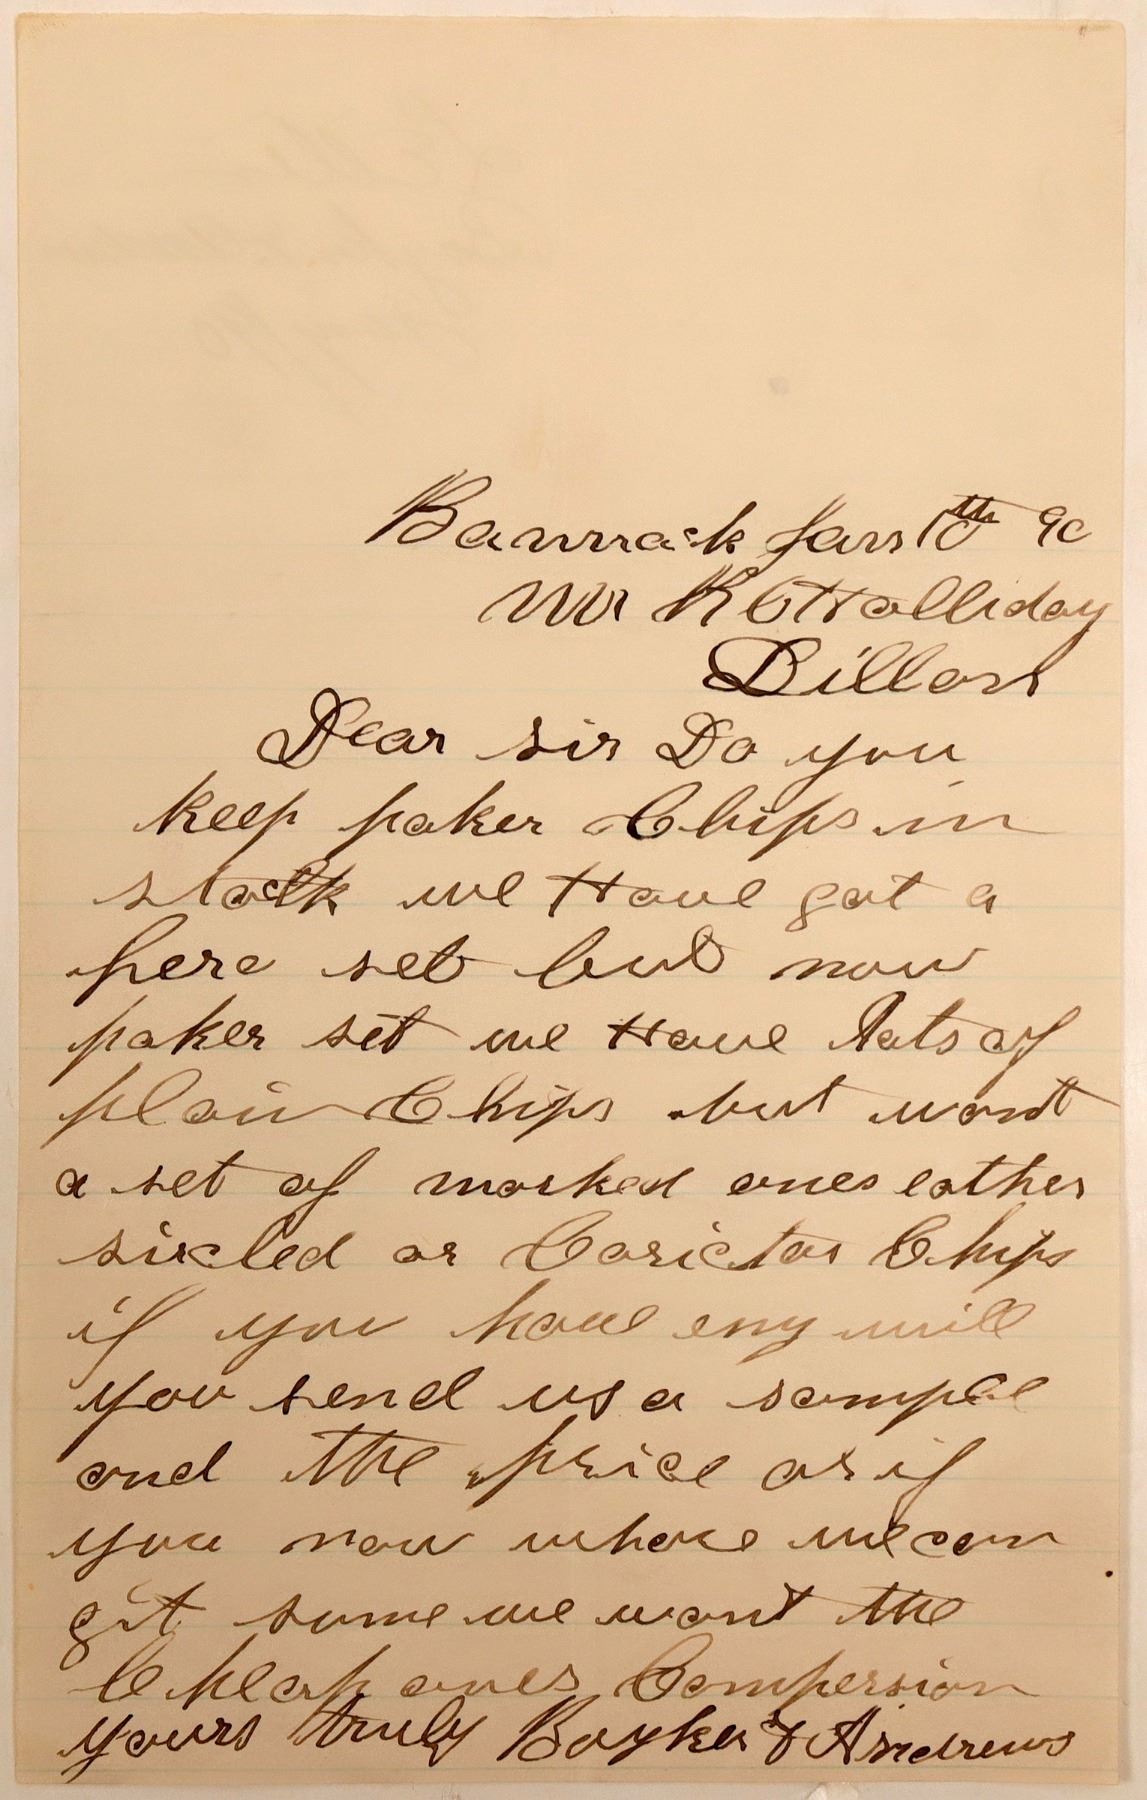 Bannack Jan 10th 90
Mr R E Halliday
Dillon
Dear sir Do you
keep poker Chips in
stock we Have got a
pero set but now
poker set we Have lots of
plain Chips but want
a set of marked ones eather
sircled or Carictor Chips
if you have eny will
you send us a sample
and the price or if
you now whare we can
git some we want the
Cheap ones Compersion
yours truly Boyker & Andrews